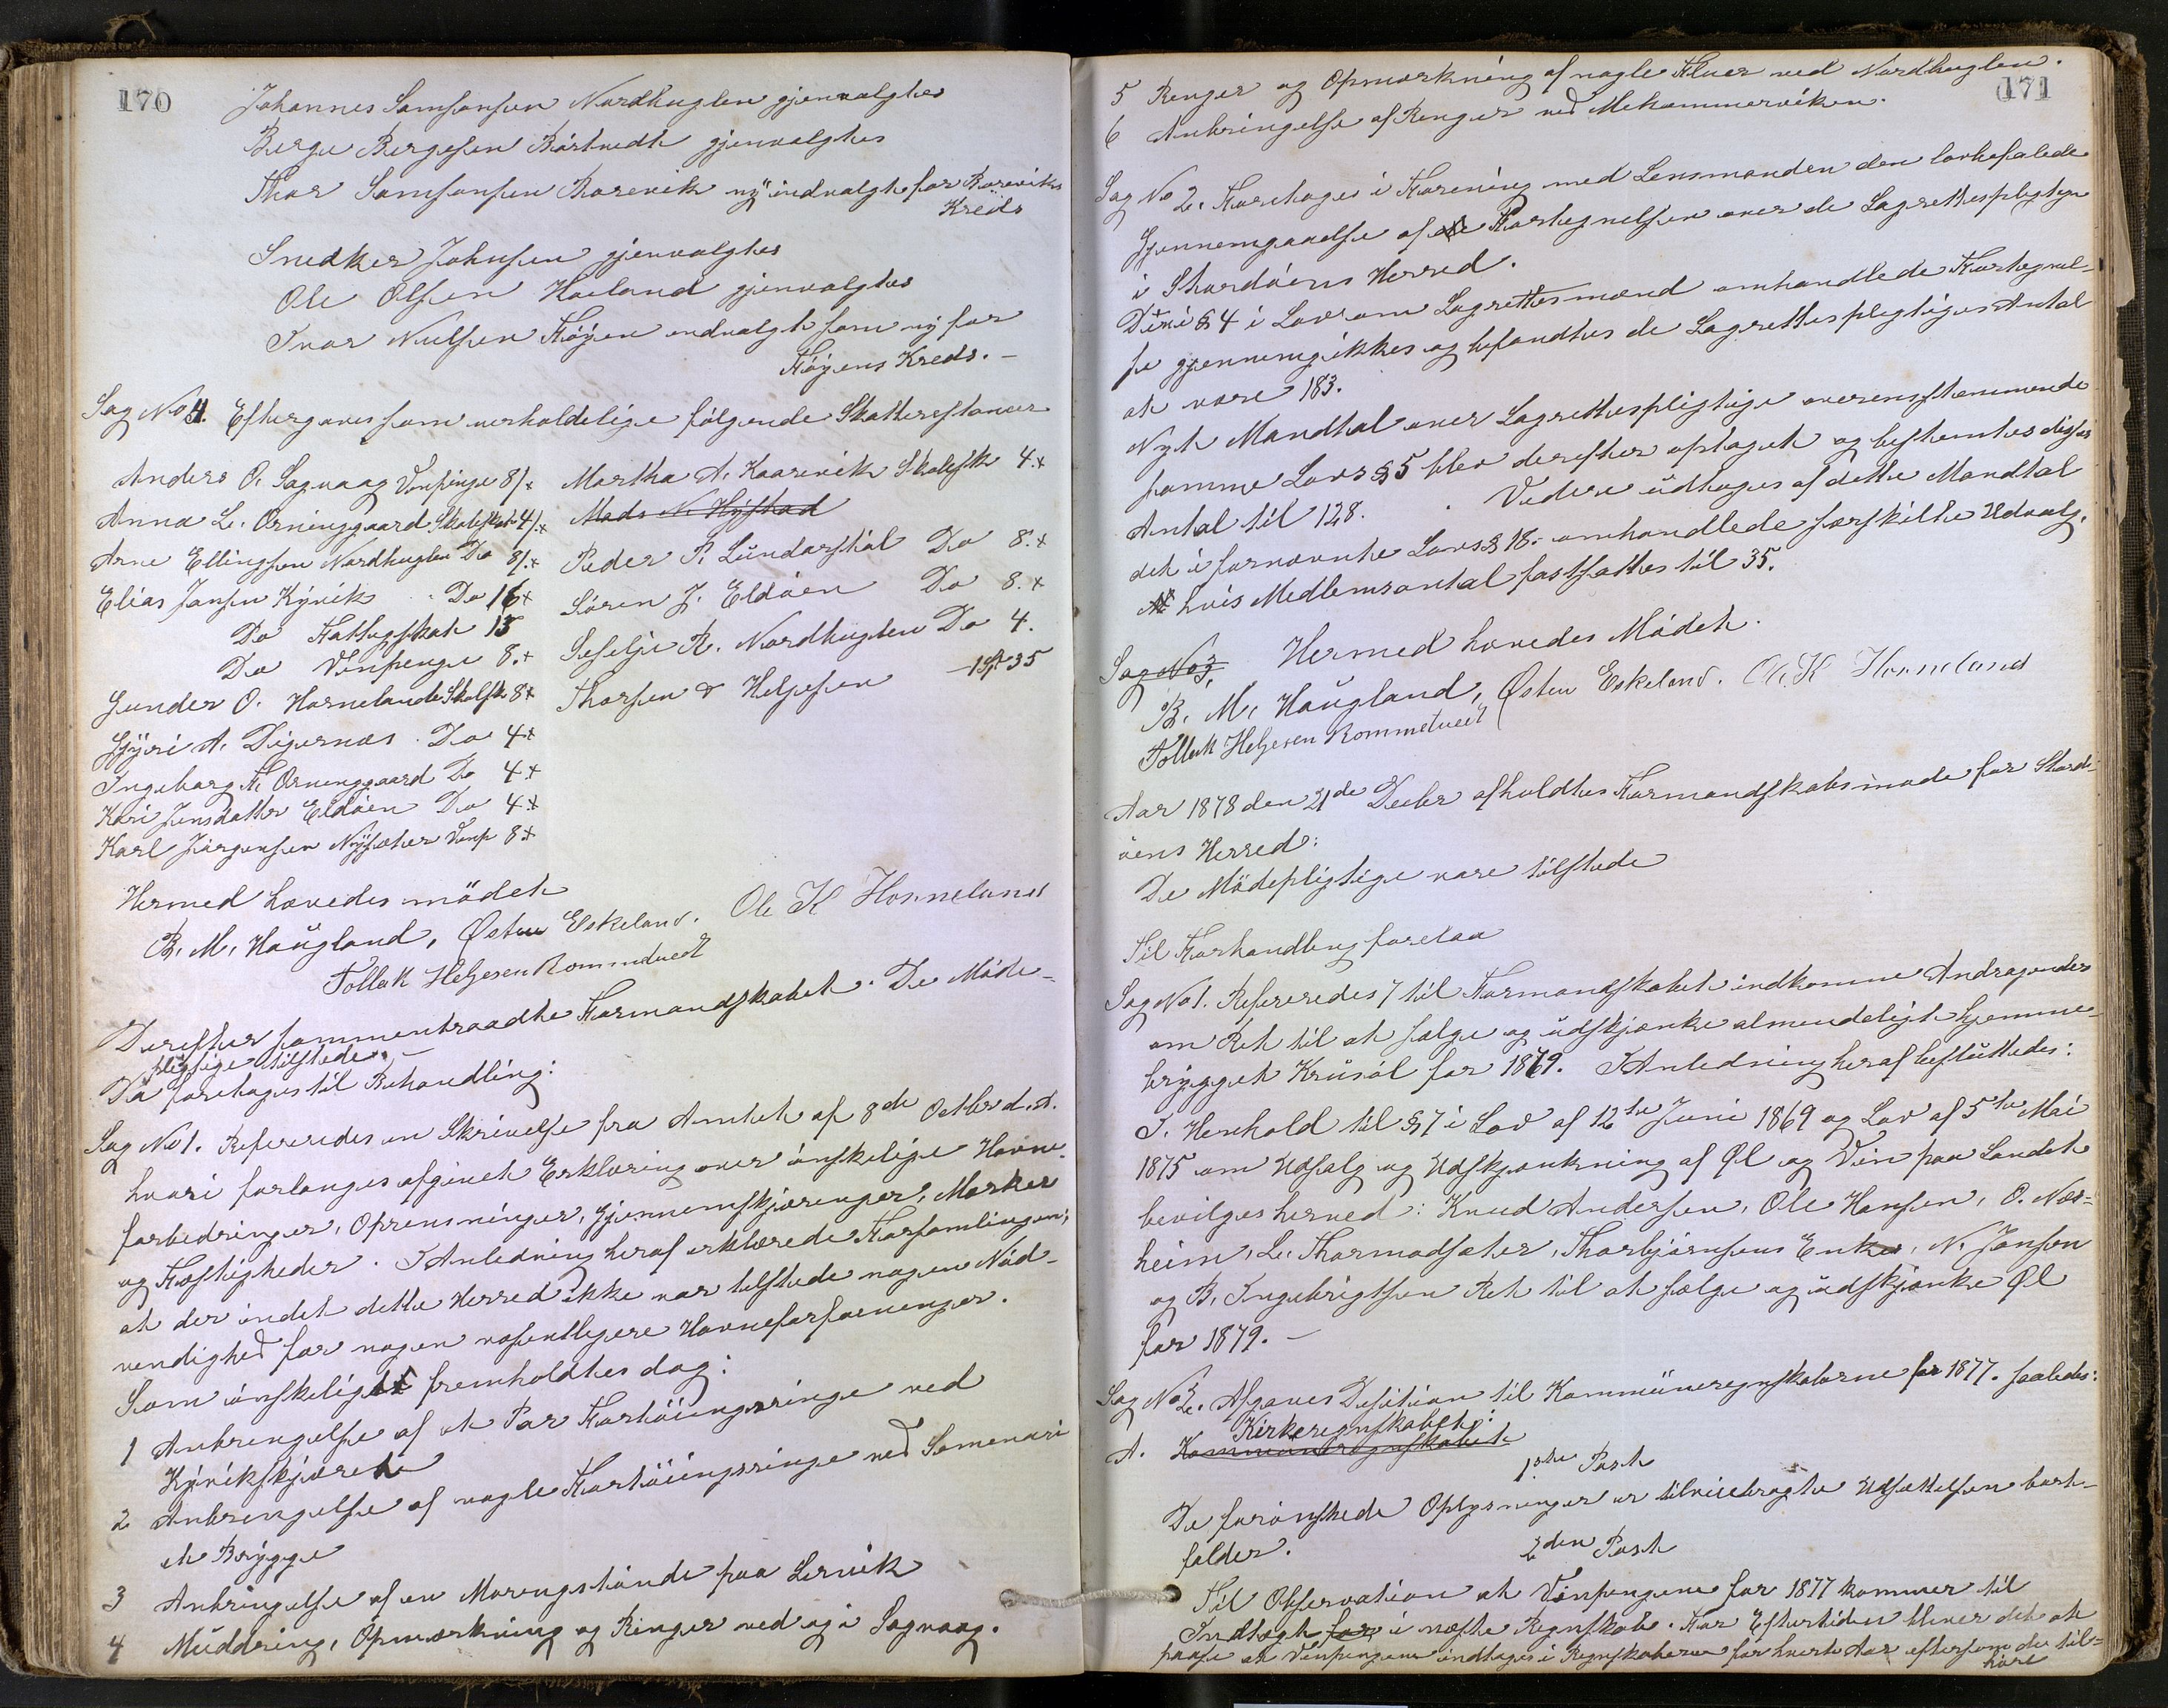 170
Johannes Samsonsen Nordhuglen gjenvalgtes
Berge Bergesen Børtvedt gjenvalgtes
Thor Samsonsen Børevik ny indvalgt for Børeviks
Kreds
Snedker Johnsen gjenvalgtes
Ole Olsen Hæland gjenvalgtes
Ivar Nielsen Høyen indvalgt som ny for
Høyens Kreds. —
Sag No 4. Eftergaves som uerholdelige følgende Skatterestancer
Anders O. Sagvaag Vinpenge 8/.x
Anna L. Orninggaard Skoleskat 4/.x
Arne Ellingsen Nordhuglen Do 8/.x
Elias Jansen Kyvik Do 16x
Do Fattigskat 15
Do Vinpenge 8.x
Gunder O. Hornelande Skolsk 8x
Gyri A. Digernæs Do 4x
Ingeborg H. Orninggaard Do 4.x
Kari Jensdatter Eldøen Do 4.x
Karl Jørgensen Nysæter Vinp 8.x
Martha A. Kaarevik Skolesk 4.x
Mads N. Hystad
Peder P. Lundarstøl Do 8.x
Søren J. Eldøen Do 8.x
Seselje R. Nordhuglen Do 4.
Thorsen & Helgesen 1 Sp 35
Hermed hævedes mødet
B. M. Haugland, Østen Eskeland. Ole K Horneland
Tollak Helgesen Rommetvedt
Derefter sammentraadte Formandskabet. De Møde-
pligtige tilstede. —
Da foretoges til Behandling:
Sag No 1. Refereredes en Skrivelse fra Amtet af 8de Octbr d. A.
hvori forlanges afgivet Erklæring over ønskelige Havne-
forbedringer, Oprensninger, Gjennemskjæringer, Mærker
og Fæstigheder. I Anledning heraf erklærede Forsamlingen,
at der indet dette Herred ikke var tilstede nogen Nød-
vendighed for nogen væsentligere Havneforføeninger.
Som ønskeligt fremholdtes dog:
1 Anbringelse af et Par Fortøiningsringe ved
Kyvikskjæret
2 Anbringelse af nogle Fortøiningsringe ved Semenari
et Brygge
3 Anbringelse af en Moringstønde paa Lervik
4 Muddring, Opmærkning og Ringer ved og i Sagvaag.
171
5 Ringer og Opmærkning af nogle Fluer ved Nordhuglen.
6 Anbringelse af Ringer ved Mehammerviken.
Sag No 2. Foretoges i Forening med Lensmanden den lovbefalede
Gjennemgaaelse af Fortegnelsen over de Lagrettespligtige
i Stordøens Herred.
Den i § 4 i Lov om Lagrettesmænd omhandlede Fortegnel-
se gjennemgikkes og befandtes de Lagrettespligtiges Antal
at være 183.
Nyt Mandtal over Lagrettespligtige overensstemmende
samme Lovs § 5 blev derefter optaget og bestemtes disses
Antal til 128. Videre udtoges af dette Mandtal
det i fornævnte Lovs § 18. omhandlede særskilte Udvalg,
hvis Medlemsantal fastsattes til 35.
Sag No 3. Hermed hævedes Mødet.
B. M. Haugland, Østen Eskeland. Ole K Horneland
Tollak Helgesen Rommetvedt
Aar 1878 den 21de Decbr afholdtes Formandskabsmøde for Stord-
øens Herred:
De Mødepligtige vare tilstede
Til Forhandling forelaa
Sag No 1. Refereredes 7 til Formandskabet indkomne Andragender
om Ret til at sælge og udskjænke almindeligt hjemme-
brygget Krusøl for 1879. I Anledning heraf besluttedes:
I Henhold til § 7 i Lov af 12te Juni 1869 og Lov af 5te Mai
1875 om Udsalg og Udskjænkning af Øl og Vin paa Landet
bevilges herved: Knud Andersen, Ole Hansen, O. Næs-
heim, L. Thormodsæter, Thorbjørnsens Enke, N. Jansen
og B. Ingebrigtsen Ret til at sælge og udskjænke Øl
for 1879. —
Sag No 2. Afgaves Desition til Kommüneregnskaberne for 1877. saaledes:
Kirkeregnskabet:
A. Kommüneregnskabet
1ste Post
De forønskede Oplysninger er tilveiebragte Udsættelsen bort-
falder.
2den Post
Til Observation at Vinpengene for 1877 kommer til
Indtægt for i næste Regnskab. For Eftertiden bliver det at
paase at Vinpengene indtages i Regnskaberne for hvert Aar eftersom de til-
høre